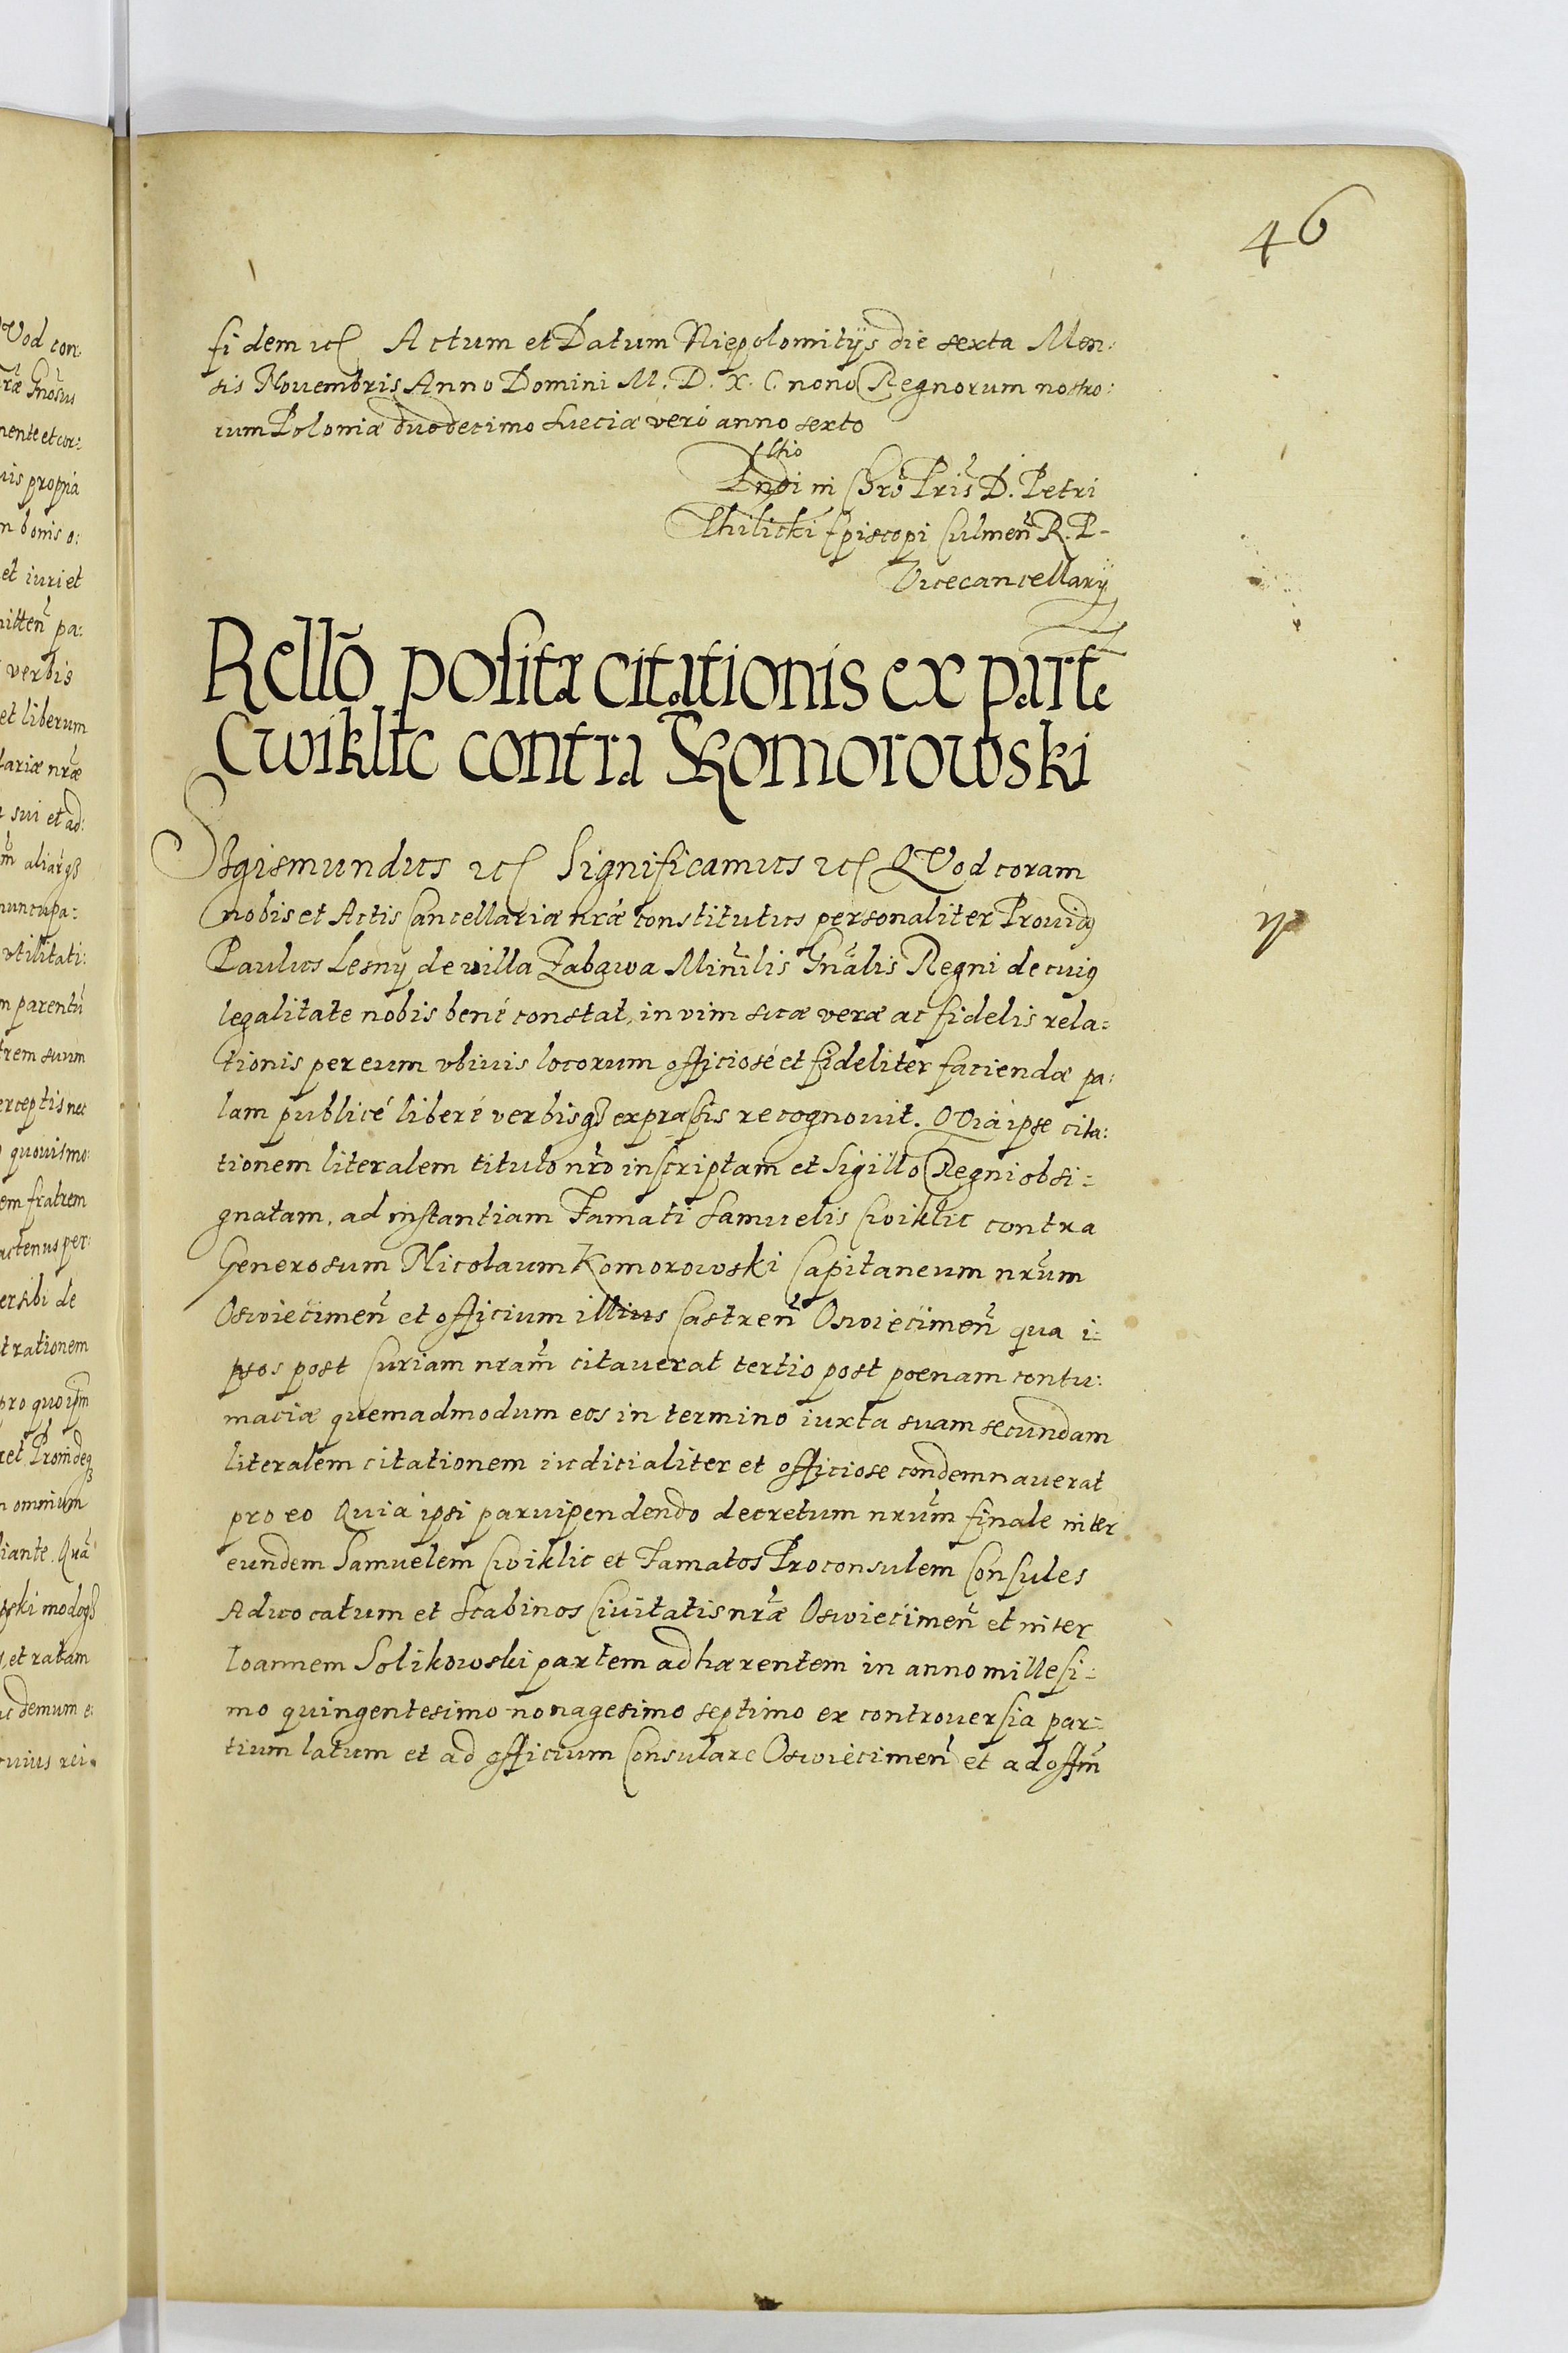 46
fidem etc Actum et Datum Niepolomitijs die sexta Men:
sis Nouembris Anno Domini M. D. X. C. nono Regnorum nostro:
rum Poloniæ duodecimo Sueciæ veró anno sexto
Rltio
Rndi in Chro Pris D. Petri
Thilicki Episcopi Culmen R. P.
Vicecancellarij
Rello positæ citationis ex parte
Cwiklic contra Komorowski
Sigismundus etc Significamus etc QVod coram
nobis et Actis Cancellariæ nræ constitutus personaliter Prouidus
Paulus Lesny de villa Zabawa Minrlis Gnalis Regni de cuius
legalitate nobis bené constat, in vim suæ veræ ac fidelis rela:
tionis per eum vbiuis locorum officiosé et fideliter faciendæ pa:
lam publicé liberé verbisq3 expræssis recognouit. QVia ipse cita:
tionem literalem titulo nro inscriptam et Sigillo Regni obsi:
gnatam, ad instantiam Famati Samuelis Cwiklic contra
Generosum Nicolaum Komorowski Capitaneum nrum
Oswiecimen et officium illius Castren Oswiecimen qua i:
psos post Curiam nram citauerat tertio post poenam contu:
maciæ quemadmodum eos in termino iuxta suam secundam
literalem citationem iudicialiter et officiose condemnauerat
pro eo Quia ipsi paruipendendo decretum nrum finale inter
eundem Samuelem Cwiklic et Famatos Proconsulem Consules
Aduocatum et Scabinos Ciuitatis nræ Oswiecimen et inter
Ioannem Solikowski partem adhærentem in anno millesi:
mo quingentesimo nonagesimo septimo ex controuersia par:
tium latum et ad officium Consulare Oswiecimen et ad offm